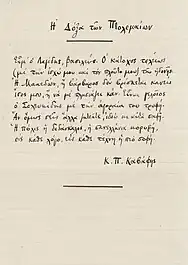 Ἡ Δόξα τῶν Πτολεμαίων
Εἶμ' ὁ Λαγίδης, βασιλεύς. Ὁ κάτοχος τελείως
(με την ἰσχύ μου και τον πλοῦτο μου) της ἡδονῆς.
Ἤ Μακεδών, ἤ βάρβαρος δεν βρίσκεται κανείς
ἴσος μου, ἤ να με πλησιάζει κάν. Εἶναι γελοῖος
ὁ Σελευκίδης με την ἀγοραία του τρυφή.
Ἄν ὅμως σεῖς ἄλλα ζητεῖτε, ἰδού κι αὐτά σαφῆ.
Ἡ πόλις ἡ διδάσκαλος, ἡ πανελλήνια κορυφή,
εἰς κάθε λόγο, εἰς κάθε τέχνη ἡ πιο σοφή.
Κ. Π. Καβάφης